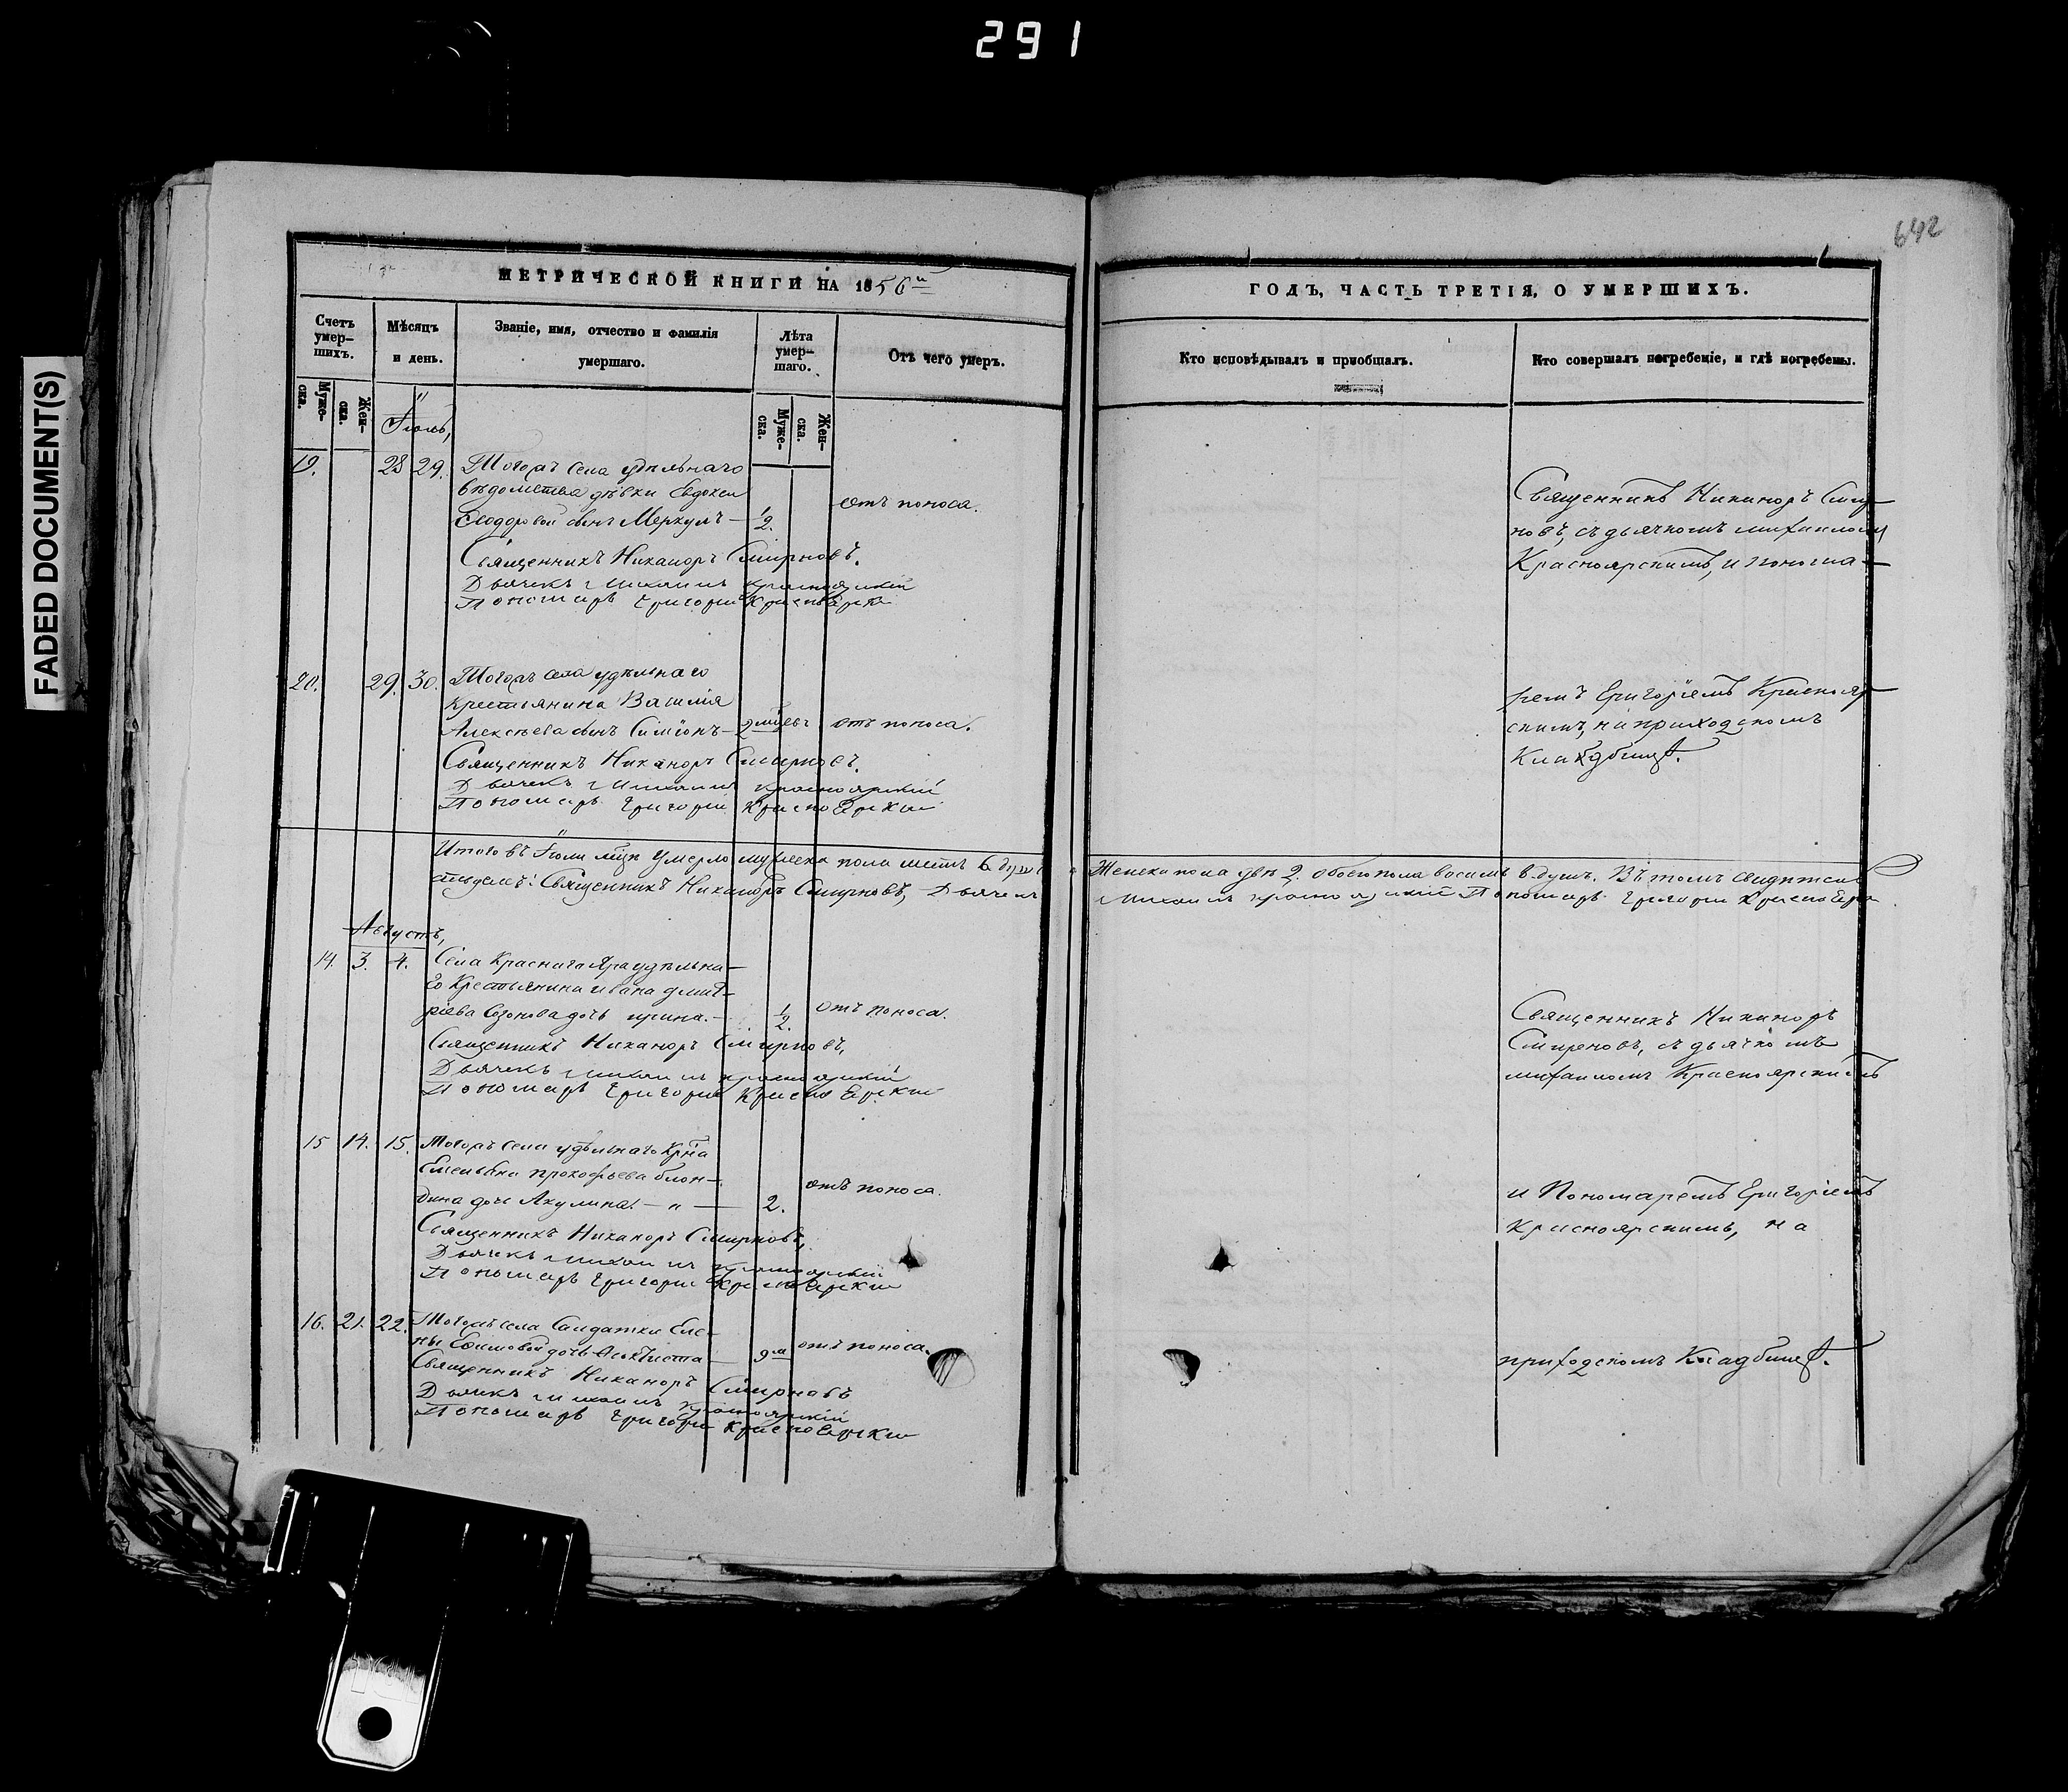 291
FADED DOCUMENT(S)
642
МЕТРИЧЕСКОЙ КНИГИ НА 1856й
ГОДЪ, ЧАСТЬ ТРЕТІЯ, О УМЕРШИХЪ.
Счетъ умер-
шихъ.
Муже-
ска.
Жен-
ска.
Мѣсяцъ
и день.
Званіе, имя, отчество и фамилія
умершаго.
Лѣта
умер-
шаго.
Муже-
ска.
Жен-
ска.
Отъ чего умеръ.
Кто исповѣдывалъ и пріобщалъ.
Кто совершалъ погребеніе, и гдѣ погребены.
Іюль,
19. 28 29. Тогожъ села удѣльнаго
вѣдомства дѣвки Евдокеи
Ѳеодоровой сынъ Меркулъ — 1/2. отъ поноса.
Священникъ Никаноръ Смирновъ.
Дьячекъ Михаилъ Красноярскій
Пономарь Григорій
Священникъ Никаноръ Смир-
новъ, съ дьячкомъ Михаиломъ
Красноярскимъ, и понома-
20. 29. 30. Тогожъ села удѣльнаго
крестьянина Василія
Алексѣева сынъ Симіонъ — 2 отъ поноса.
Священникъ Никаноръ Смирновъ.
Дьячекъ Михаилъ Красноярскій
Пономарь Григорій
ремъ Григоріемъ Краснояр-
скимъ, на приходскомъ
Кладбищѣ.
Итого въ Іюлѣ умерло мужеска пола шесть 6 душъ Женска пола двѣ 2. обоего пола восемь 8 душъ. Въ томъ свидѣтель-
ствуемъ: Священникъ Никаноръ Смирновъ, Дьячекъ Михаилъ Красноярскій Пономарь Григорій
Августъ,
14. 3. 4. Села Краснаго Яра удѣльна-
го Крестьянина Ивана Дмит-
ріева Созонова дочь Ирина. — 1/2. Отъ поноса.
Священникъ Никаноръ Смирновъ,
Дьячекъ Михаилъ Красноярскій
Пономарь Григорій
Священникъ Никаноръ
Смирновъ, съ дьячкомъ
Михаиломъ Красноярскимъ
15 14. 15. Тогожъ села удѣльнаго
Емельяна Прокофьева
дочь Акулина. — " — 2. отъ поноса.
Священникъ Никаноръ Смирновъ,
Дьячекъ Михаилъ Красноярскій
Пономарь Григорій
и Пономаремъ Григоріемъ
Красноярскимъ, на
16. 21. 22. Тогожъ села Солдатки Еле-
ны Ефимовой дочь — отъ поноса.
Священникъ Никаноръ Смирновъ
Дьячекъ Михаилъ Красноярскій
Пономарь Григорій
приходскомъ Кладбищѣ.